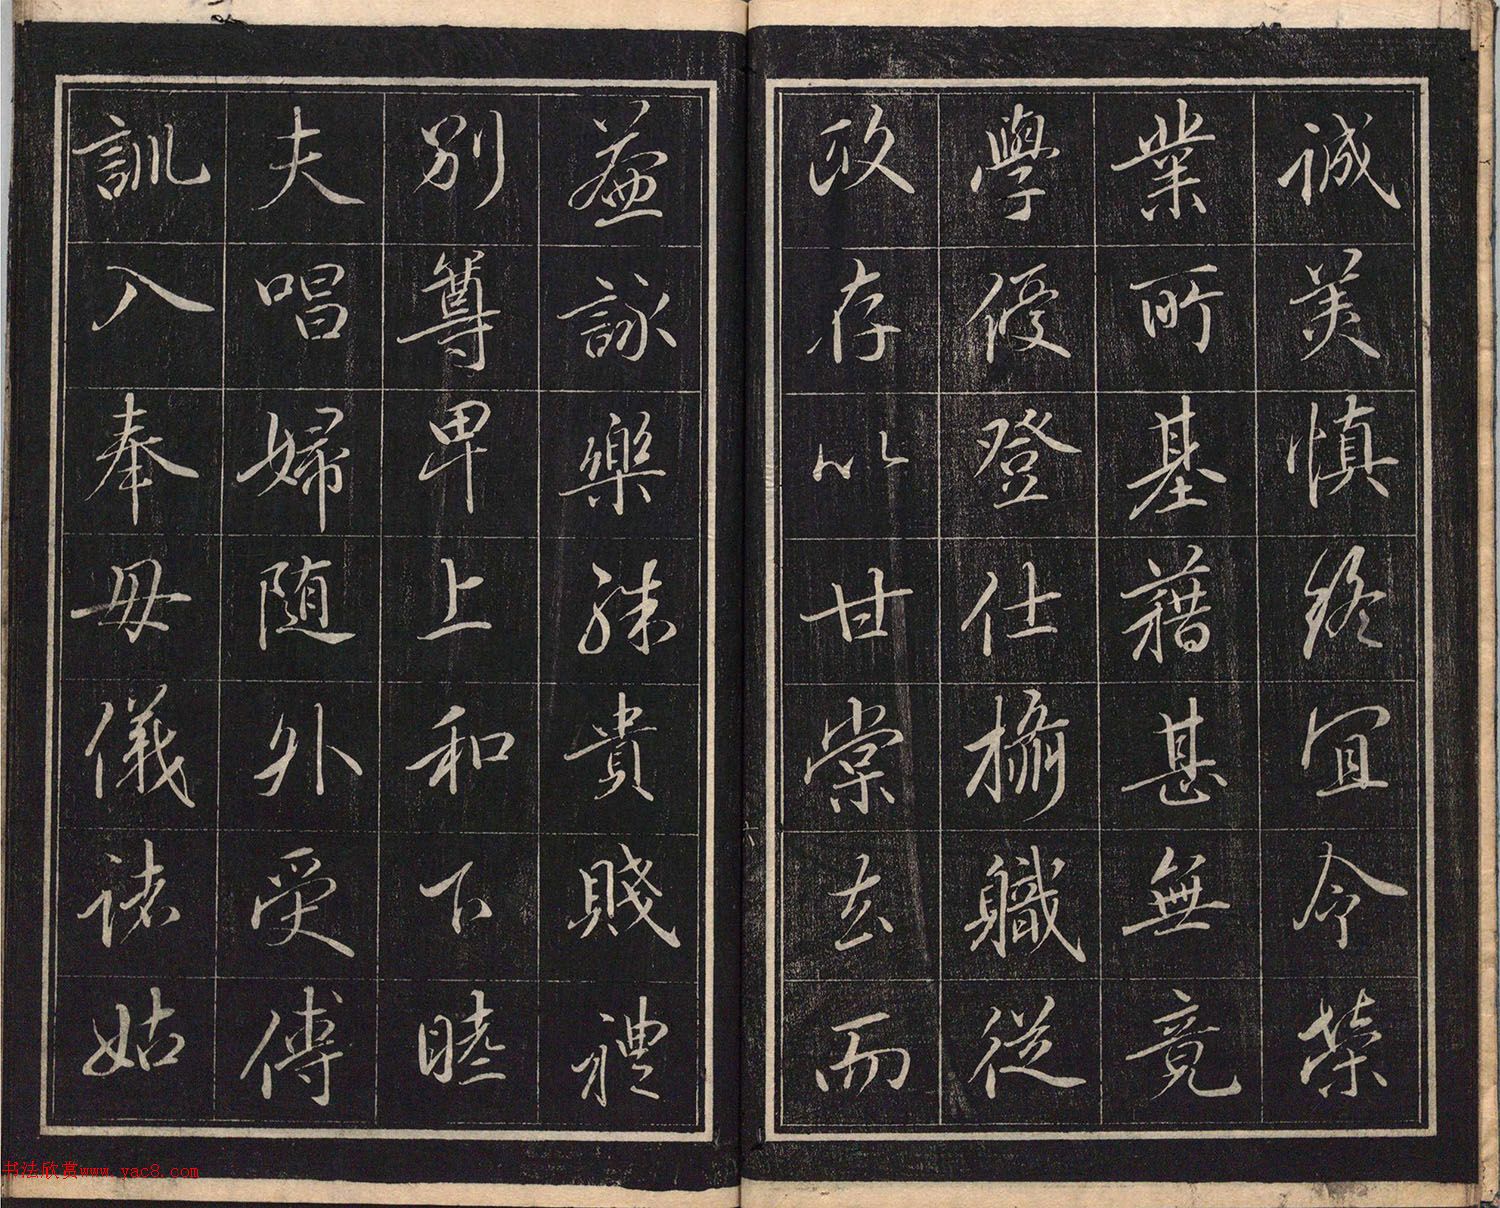 誠美慎終宜令榮
業所基藉甚無竟
學優登仕攝職從
政存以甘棠去而
益詠樂殊貴賤禮
別尊卑上和下睦
夫唱婦随外受傅
訓入奉母儀諸姑
书法欣赏www.yac8.com